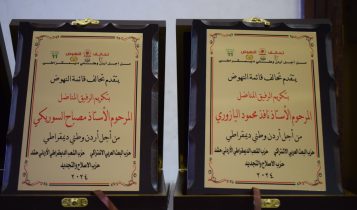 تحالف النهوض
من أجل أردن وطني ديمقراطي
يتقدم تحالف قائمة النهوض
بتكريم الرفيق المناضل
المرحوم الأستاذ مصباح السوريكي
من أجل أردن وطني ديمقراطي
حزب البعث العربي الاشتراكي حزب الشعب الديمقراطي الأردني حشد
حزب الإصلاح والتجديد
٢٠٢٤
تحالف النهوض
من أجل أردن وطني ديمقراطي
يتقدم تحالف قائمة النهوض
بتكريم الرفيق المناضل
المرحوم الأستاذ نافذ محمود البازوري
من أجل أردن وطني ديمقراطي
حزب البعث العربي الاشتراكي حزب الشعب الديمقراطي الأردني حشد
حزب الإصلاح والتجديد
٢٠٢٤